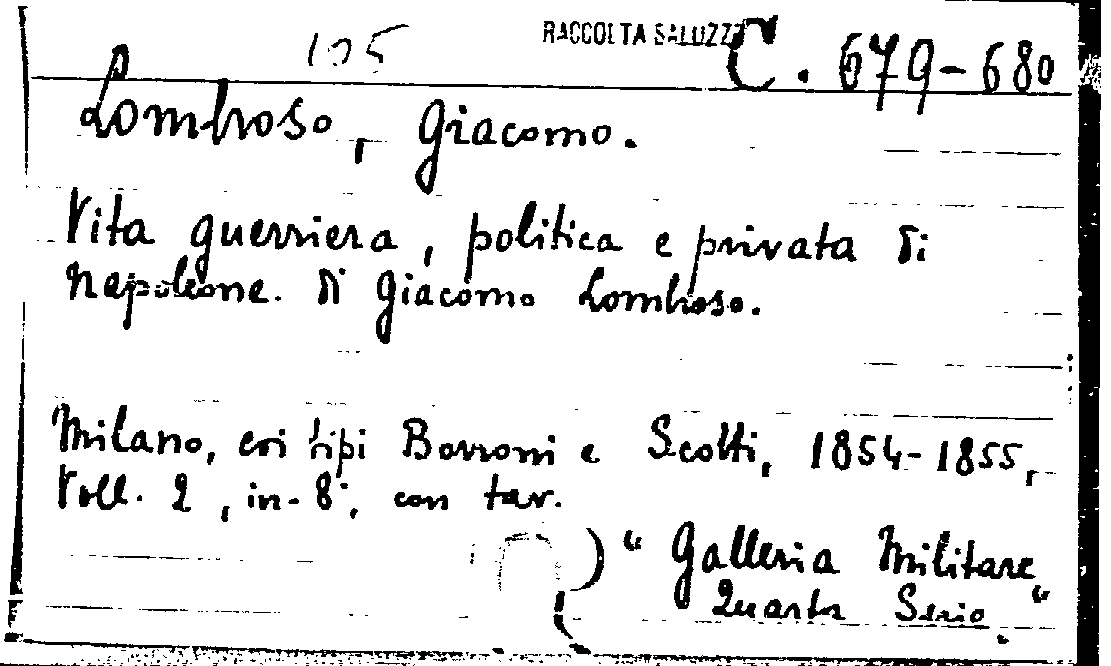 105 RACCOLTA SALUZZO C. 679-680
Lombroso, Giacomo.
Vita guerriera, politica e privata di
Napoleone. di Giacomo Lombroso.
Milano, coi tipi Borroni e Scotti, 1854-1855,
Voll. 2, in-8°, con tav.
"Galleria Militare
Quarta Serie"